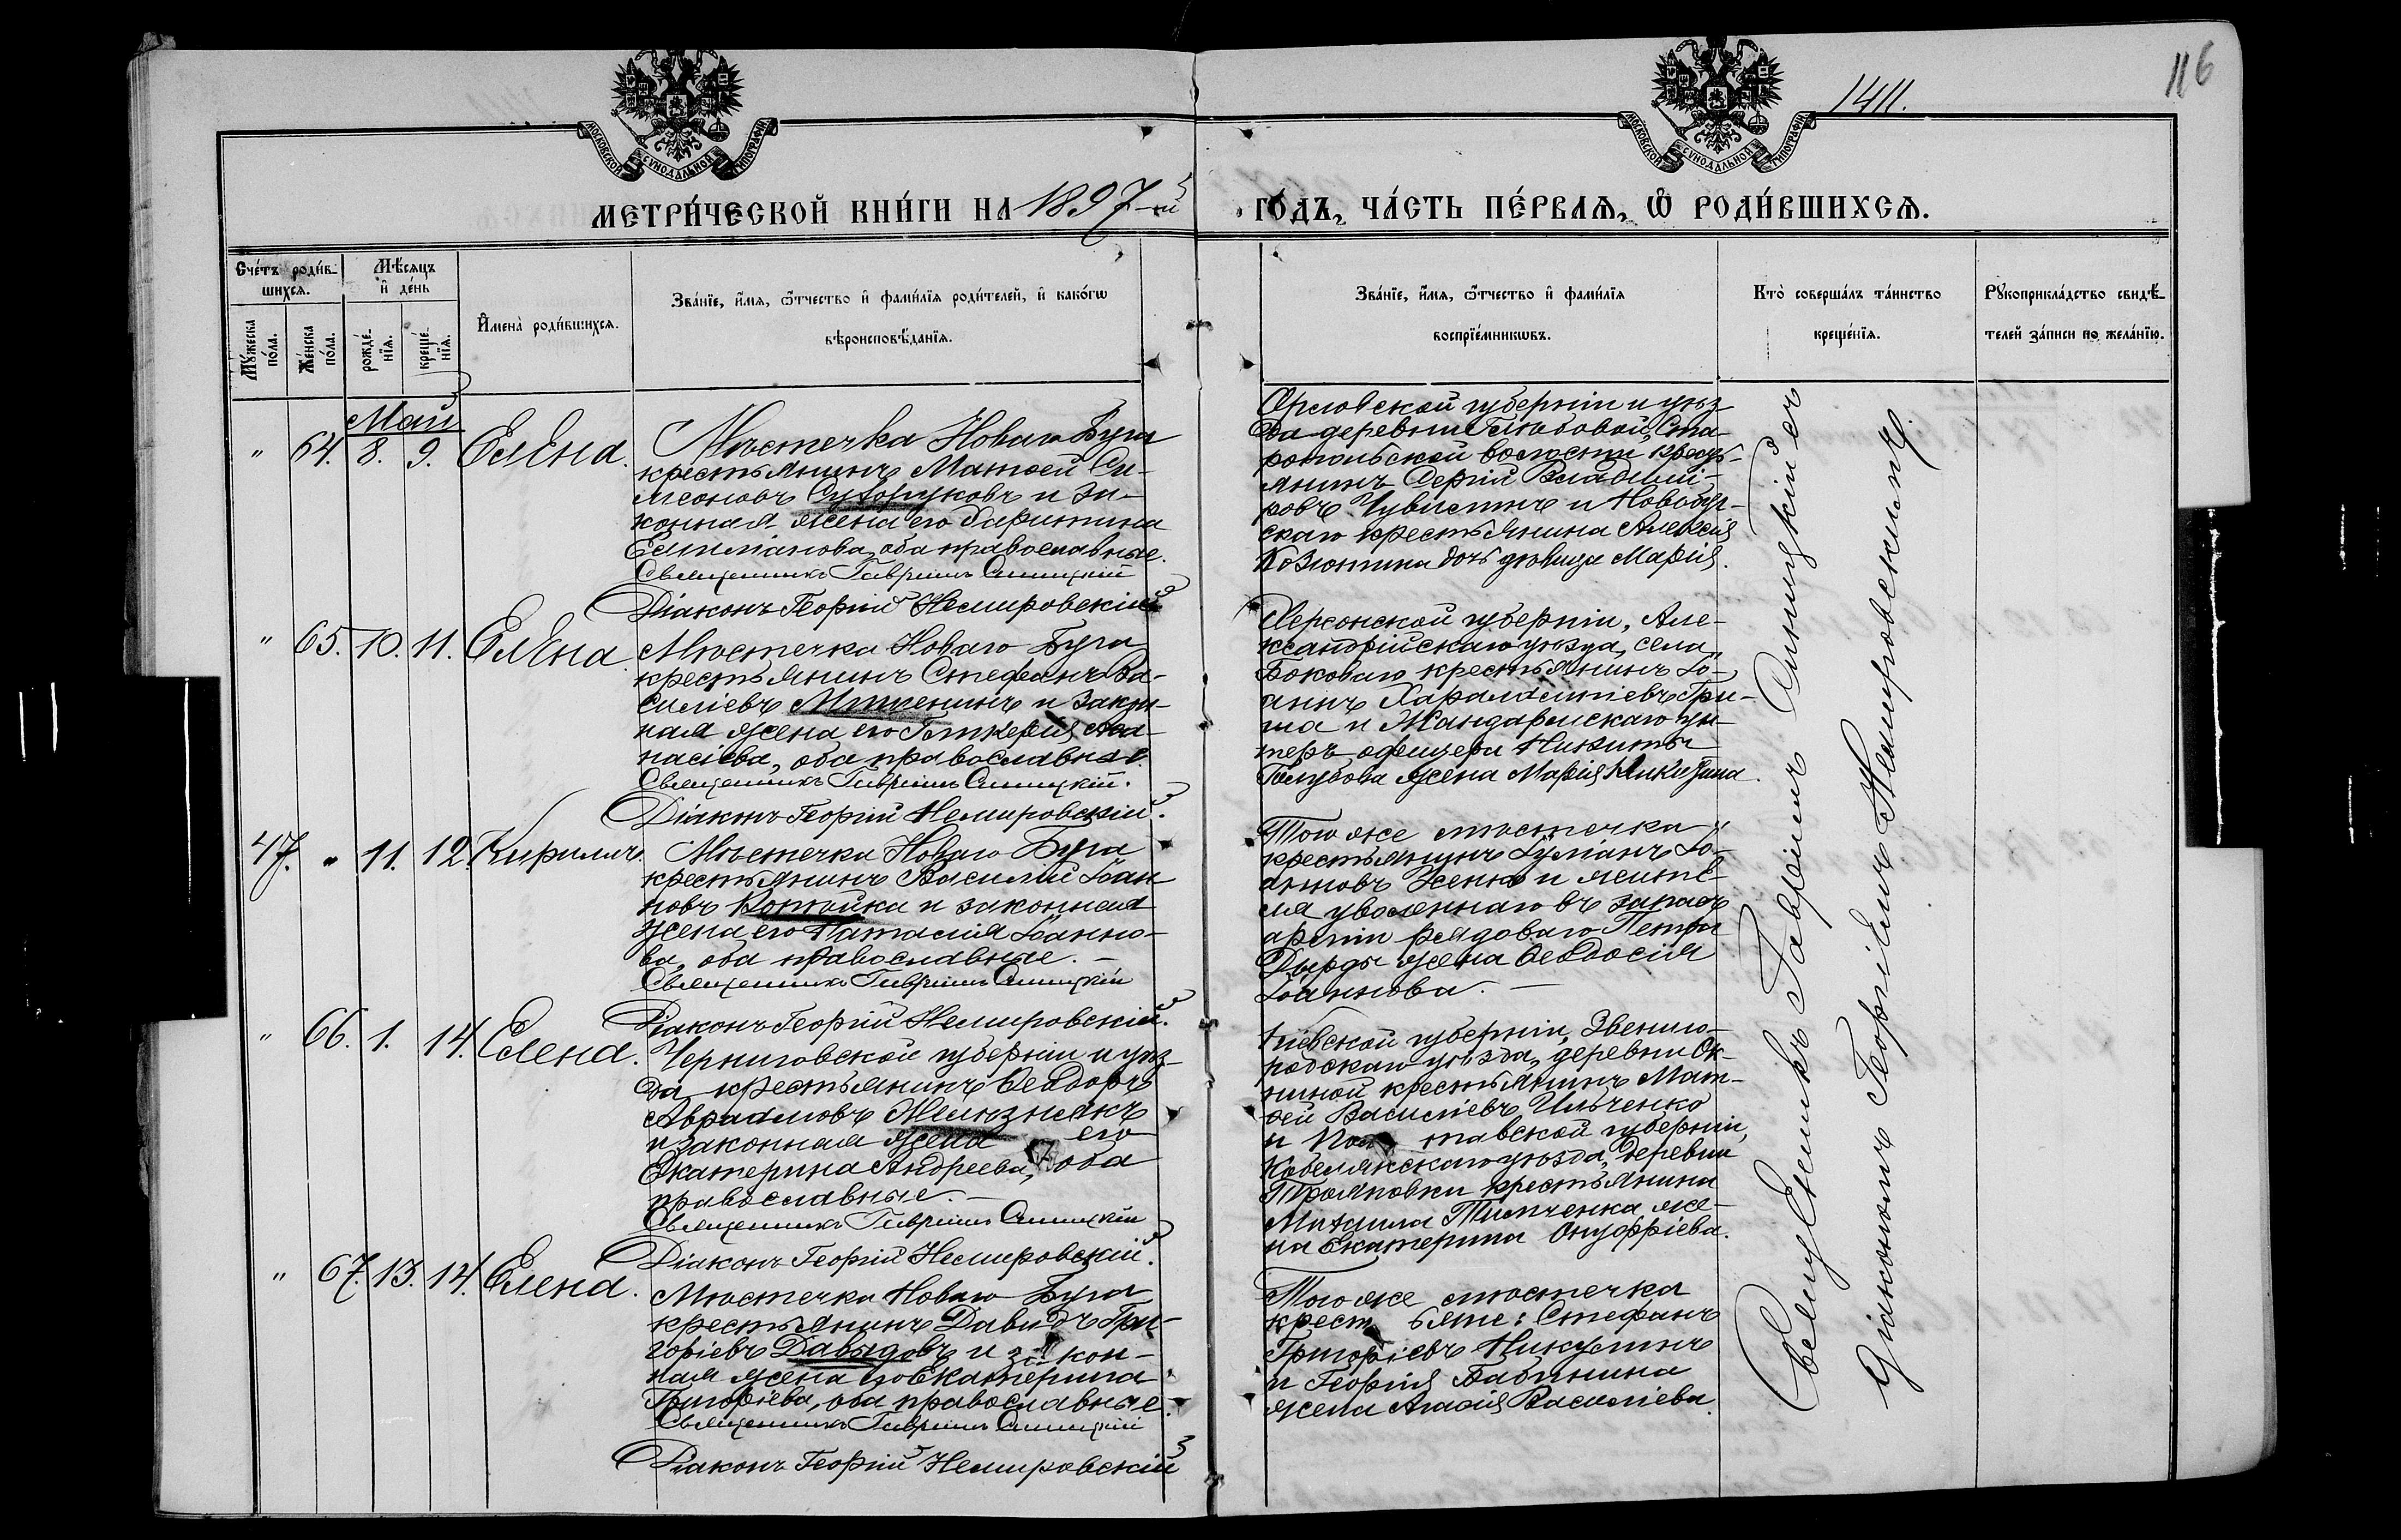 116
1411.
МОСКОВСКОЙ СѴНОДАЛЬНОЙ ТИПОГРАФІИ
МОСКОВСКОЙ СѴНОДАЛЬНОЙ ТИПОГРАФІИ
МЕТРИ́ЧЕСКОЙ КНИ́ГИ НА 1897-й
ГО́ДЪ, ЧА́СТЬ ПЕ́РВАѦ, Ѡ РОДИ́ВШИХСѦ.
Счётъ роди́в-
шихсѧ.
Мѣ́сѧцъ
и҆ де́нь
Мꙋ́жеска по́ла.
Же́нска по́ла.
рожде́-нїѧ.
креще́-нїѧ.
И҆мена̀ роди́вшихсѧ.
Зва́нїе, и҆́мѧ, ѻ҆́тчество и҆ фами́лїѧ роди́телей, и҆ како́гѡ
вѣроисповѣ́данїѧ.
Зва́нїе, и҆́мѧ, ѻ҆́тчество и҆ фами́лїѧ
воспрїе́мникѡвъ.
Кто̀ соверша́лъ та́инство
креще́нїѧ.
Рꙋкоприкла́дство свидѣ́-
телей за́писи по жела́нїю.
Май
" 64. 8. 9. Елена.
Мѣстечка Новаго Буга
крестьянинъ Матѳей Си-
меоновъ Сухоруковъ и за-
конная жена его Харитина
Емиліанова, оба православные.
Священникъ Гавріилъ Синицкій
Діаконъ Георгій Немировскій
Орловской губерніи и уѣз-
да деревни Глюбовой, Ста-
ропольской волости кресть-
янинъ Сергій Владимі-
ровъ Чувистинъ и Новобуг-
скаго крестьянина Алексія
Козюлина дочь дѣвица Марія.
" 65. 10. 11. Елена.
Мѣстечка Новаго Буга
крестьянинъ Стефанъ Ва-
силіевъ Митенинъ и закон-
ная жена его Гликерія Аѳа-
насіева, оба православные.
Священникъ Гавріилъ Синицкій.
Діаконъ Георгій Немировскій.
Херсонской губерніи, Але-
ксандрійскаго уѣзда, села
Боковаго крестьянинъ Іо-
аннъ Харалампіевъ Гри-
ша и Жандармскаго ун-
теръ офицера Никиты
Голубова жена Марія Никитина.
47. " 11. 12. Кириллъ
Мѣстечка Новаго Буга
крестьянинъ Василій Іоан-
новъ Котайка и законная
жена его Наталія Іоанно-
ва, оба православные. —
Священникъ Гавріилъ Синицкій
Діаконъ Георгій Немировскій.
Того же мѣстечка
крестьянинъ Іуліанъ Іо-
анновъ и жите-
ля уволеннаго въ запасъ
арміи рядоваго Петра
Дырды жена Ѳеодосія
Іоаннова. —
" 66. 1. 14. Елена.
Черниговской губерніи и уѣз-
да крестьянинъ Ѳеодоръ
Авраамовъ Желѣзнякъ
и законная жена его
Екатерина Андреева, оба
православные. —
Священникъ Гавріилъ Синицкій
Діаконъ Георгій Немировскій.
Кіевской губерніи, Звениго-
родскаго уѣзда, деревни Ок-
ниной крестьянинъ Мат-
ѳей Василіевъ Ильченко
и Полтавской губерніи,
Кобелякскаго уѣзда, деревни
Трояновки крестьянина
Михаила Тимченка же-
на Екатерина Онуфріева.
" 67. 13. 14. Елена.
Мѣстечка Новаго Буга
крестьянинъ Давидъ Гри-
горіевъ Давыдовъ и закон-
ная жена его Екатерина
Григоріева, оба православные.
Священникъ Гавріилъ Синицкій
Діаконъ Георгій Немировскій
Того же мѣстечка
крестьяне: Стефанъ
Григоріевъ Никулинъ
и Георгія Бабинина
жена Агаѳія Василіева.
Священникъ Гавріилъ Синицкій съ
Діакономъ Георгіемъ Немировскимъ.